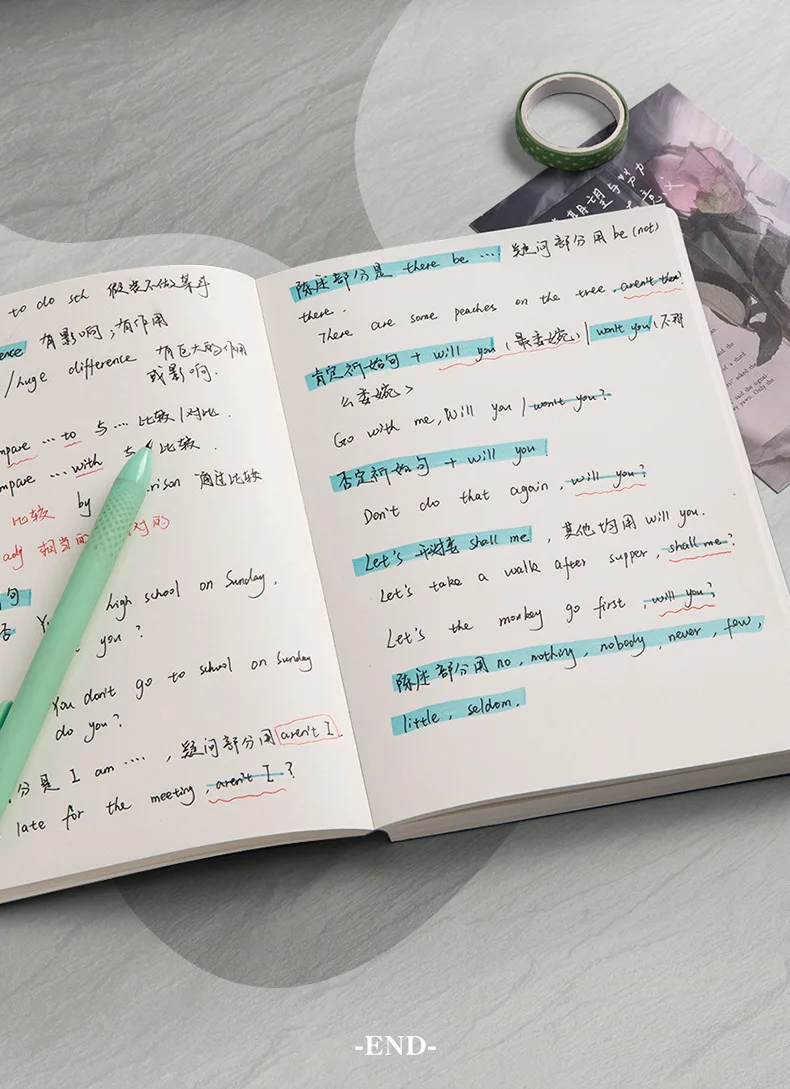 to do sth 假装不做某事
ence 有影响，有作用
/huge difference 有巨大的作用
或影响.
mpare ... to 与 .... 比较 / 对比.
mpare ... with 与 比较.
比较 by rison 通过比较
adj 相当的 对的
句
否 Yo high school on Sunday,
you?
You don't go to school on Sunday
do you?
分是 I am ...., 疑问部分用 aren't I.
late for the meeting, aren't I?
陈述部分是 there be .... 疑问部分用 be (not)
there.
There are some peaches on the tree, aren't there?
肯定祈始句 + will you (最委婉) / won't you (不那
么委婉>
Go with me, Will you / won't you?
否定祈始句 + will you
Don't do that again, will you?
Let's 开头 shall me, 其他均用 will you.
Let's take a walk after supper, shall me?
Let's the monkey go first, will you?
陈述部分用 no, nothing, nobody, never, few,
little, seldom.
期望与努力
-END-